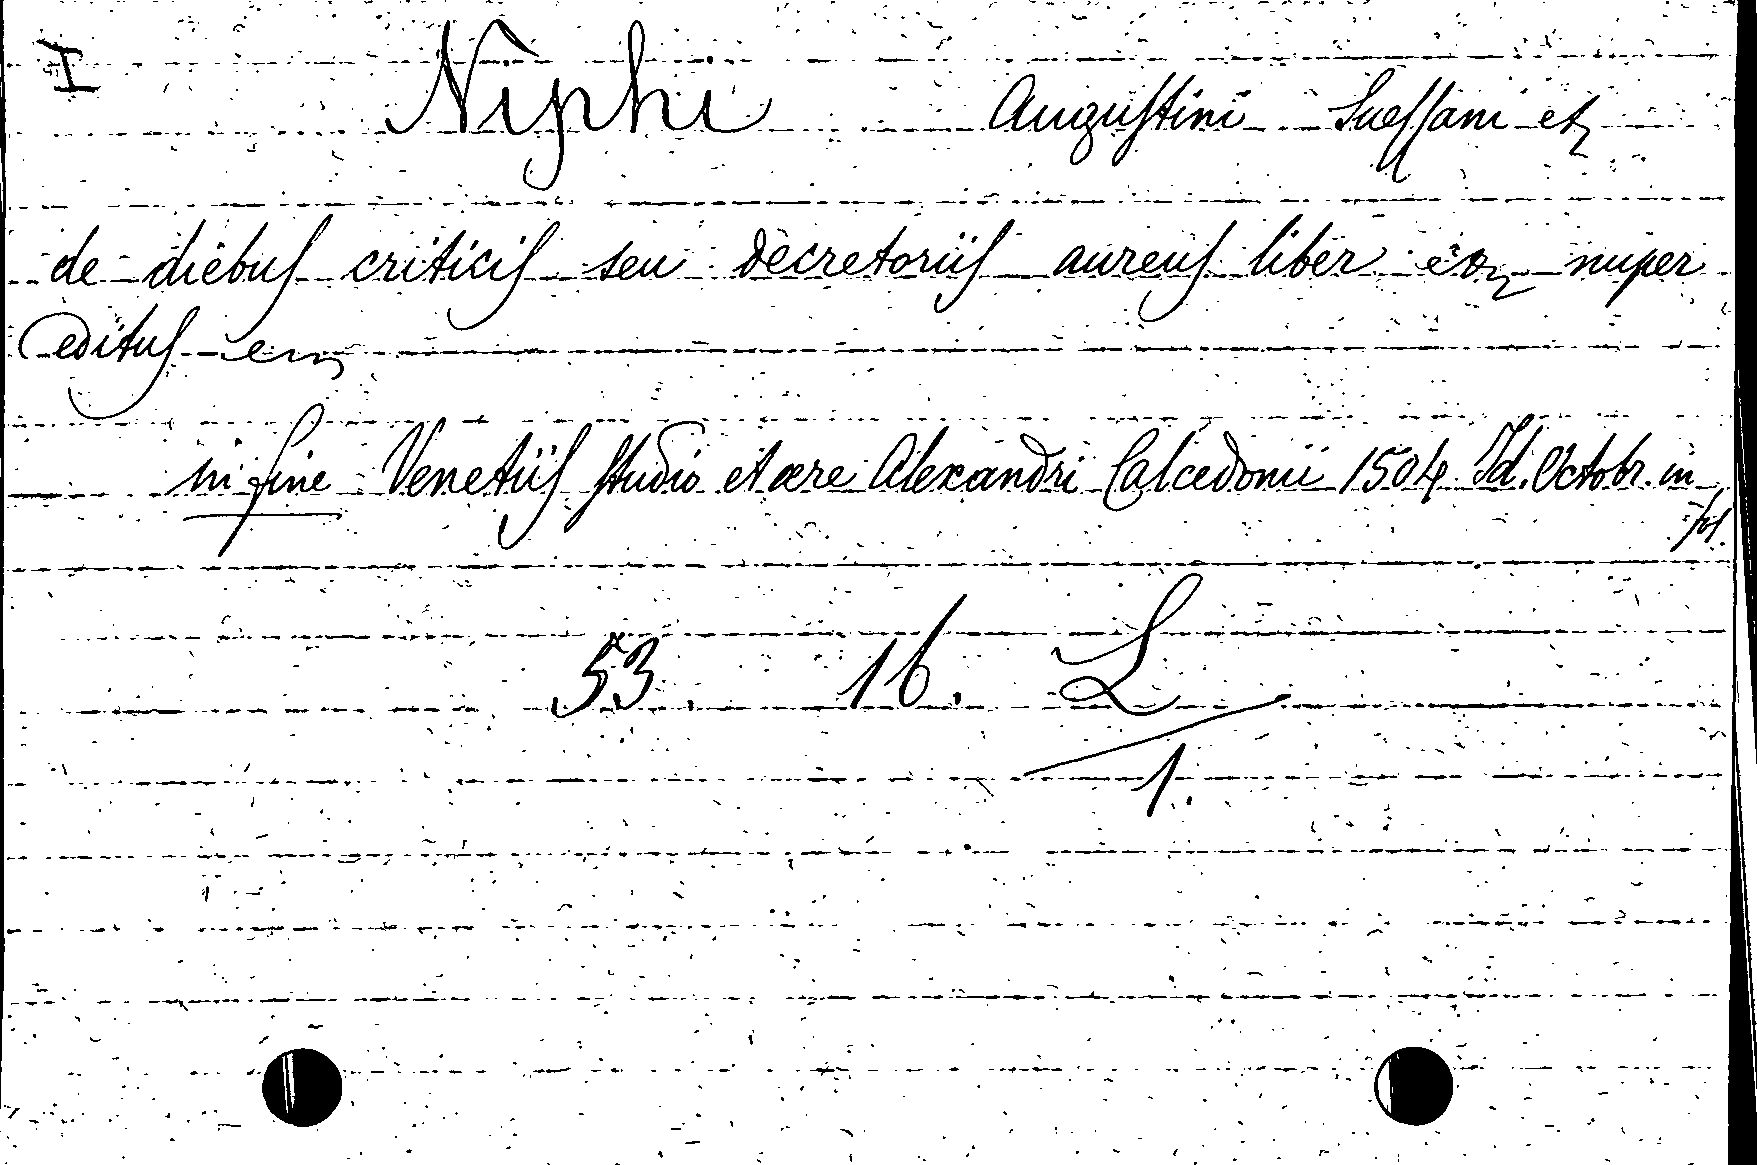 I Niphi Augustini Suessani etc
de diebus criticis seu decretoriis aureus liber etc nuper
editus etc
in fine Venetiis studio et aere Alexandri Calcedonii 1504 Id. Octobr. in
fol.
53. 16. L
1.